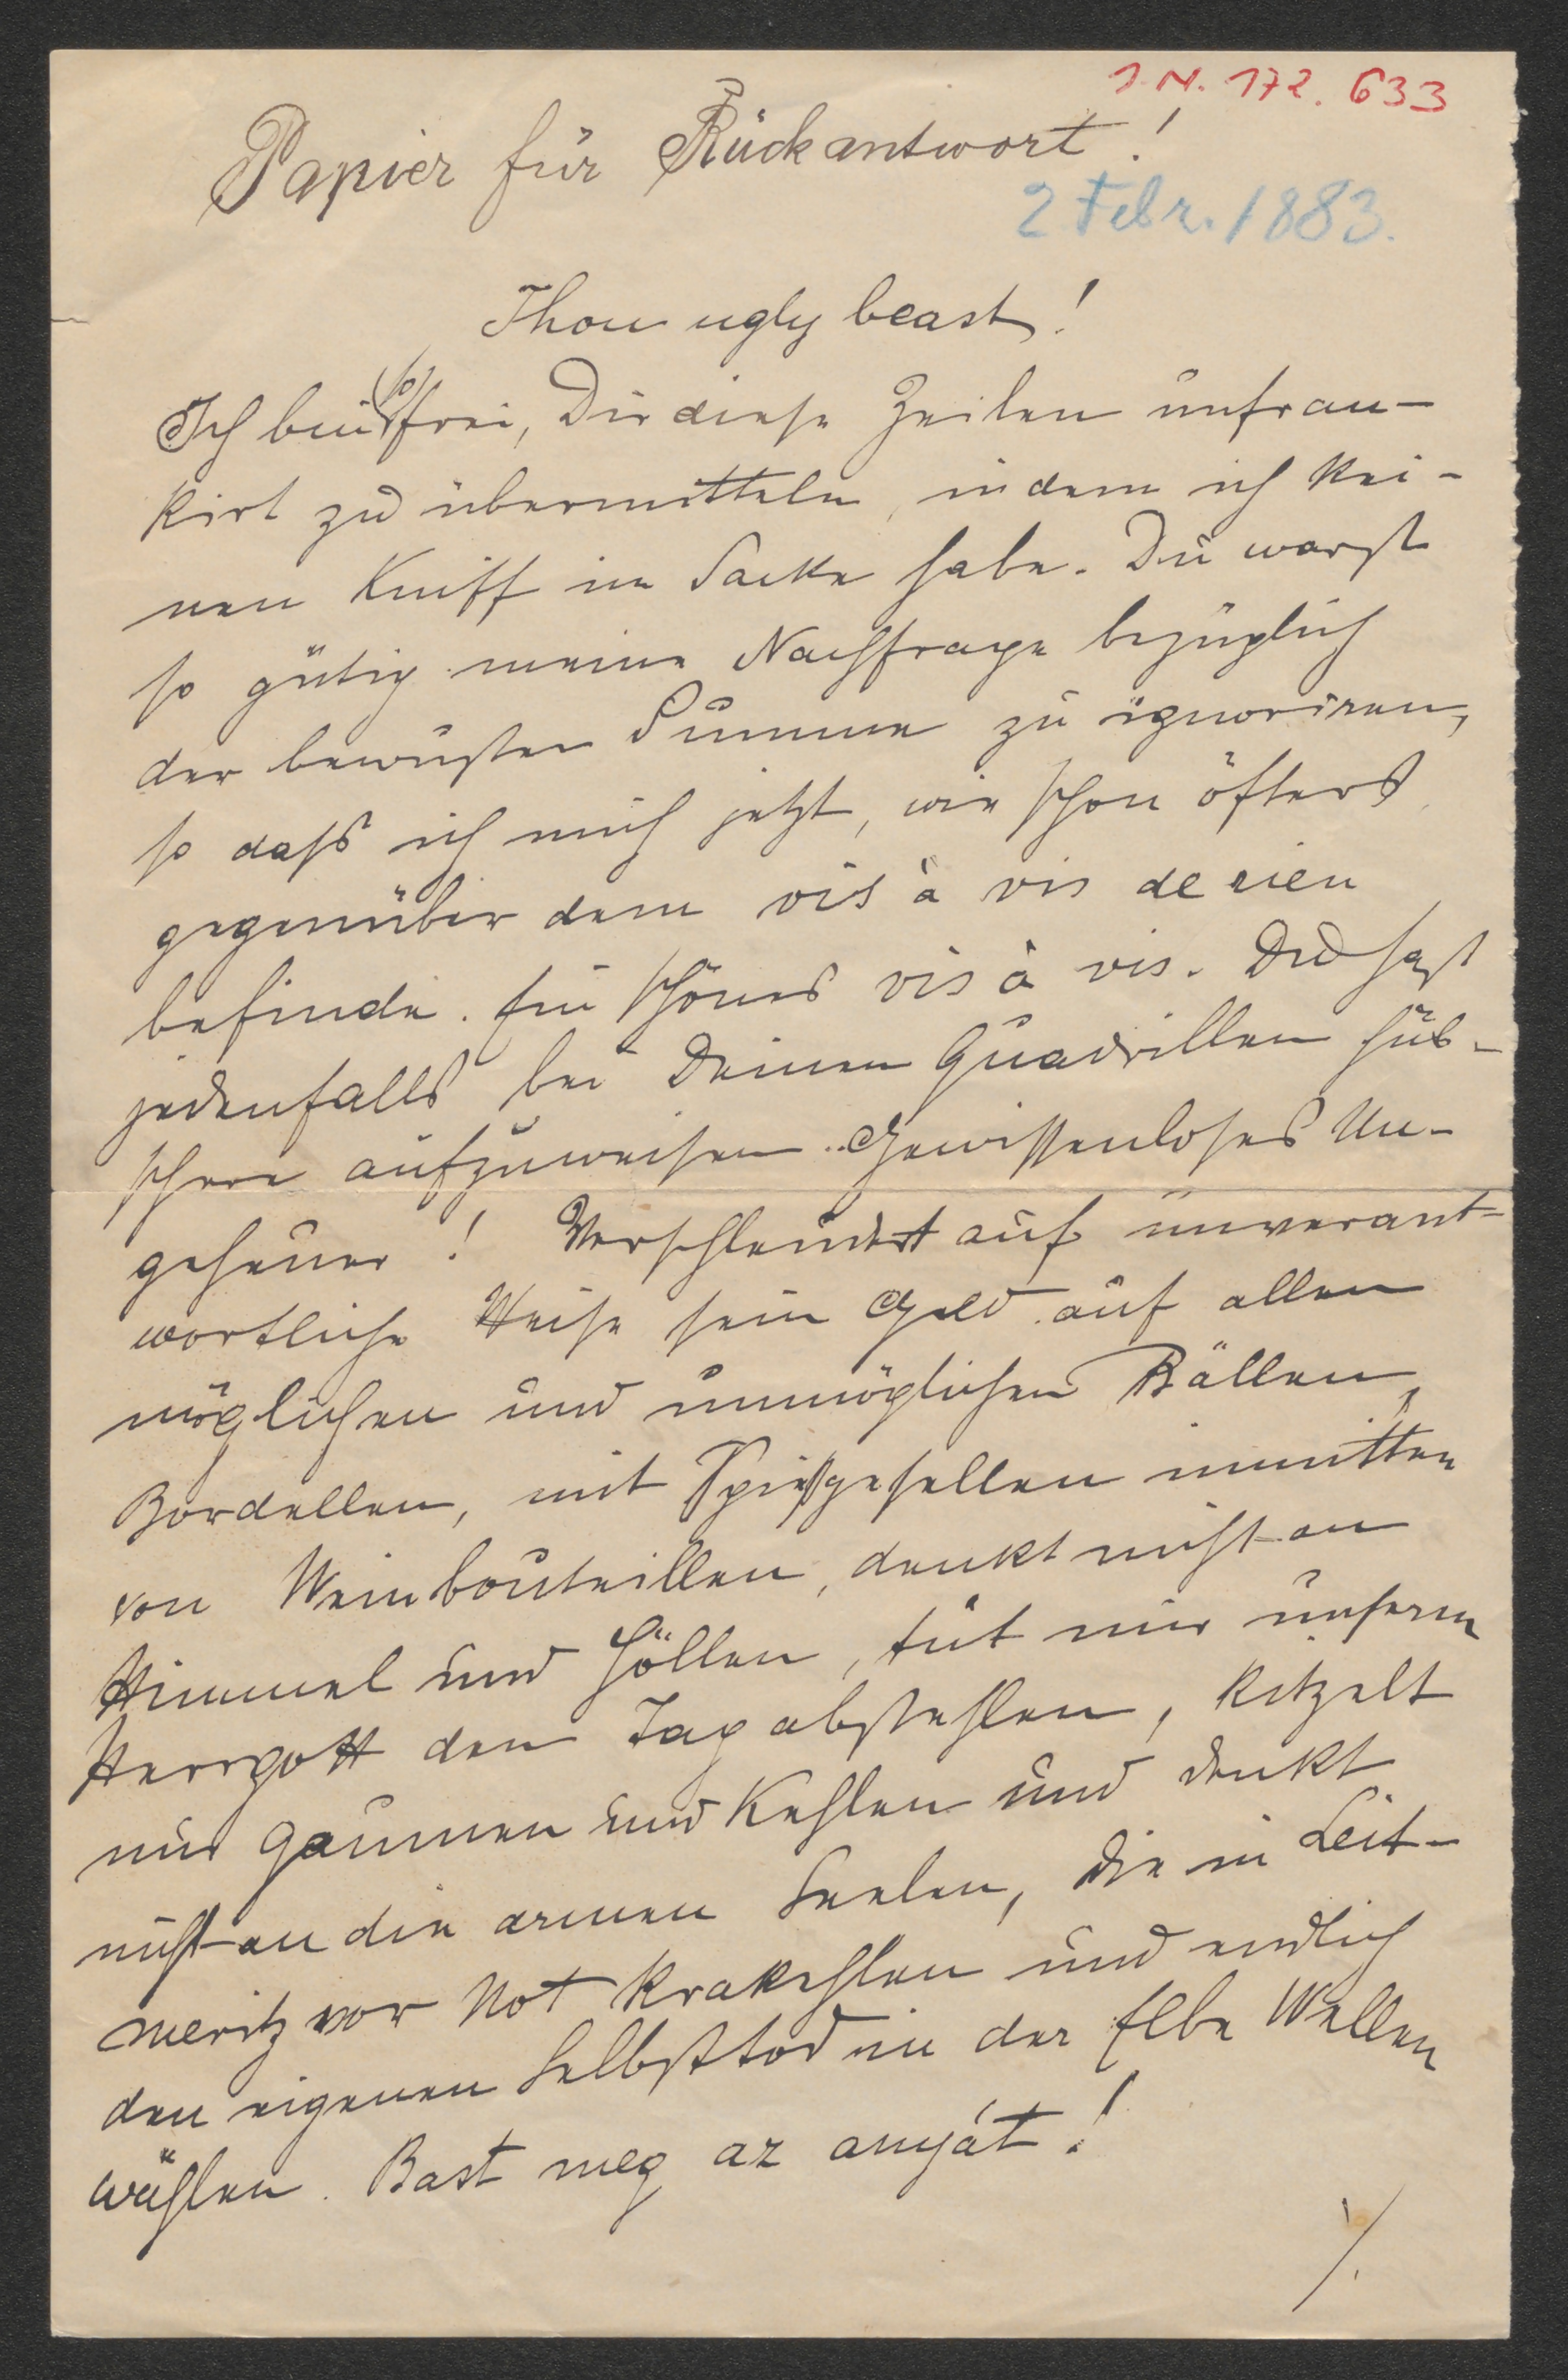 I. N. 172. 633
Papier für Rückantwort!
2 Febr. 1883.
Thou ugly beast!
Ich bin (so) frei, Dir diese Zeilen unfran-
kirt zu übermitteln, indem ich kei-
nen Kniff im Sacke habe. Du warst
so gütig meine Nachfrage bezüglich
der bewußten Summe zu ignoriren,
so daß ich mich jetzt, wie schon öfters
gegenüber dem vis à vis de rien
befinde. Ein schönes vis à vis. Du hast
jedenfalls bei Deinen Quadrillen hüb-
schere aufzuweisen. Gewissenloses Un-
geheuer! Verschleudert auf unverant-
wortliche Weise sein Geld auf allen
möglichen und unmöglichen Bällen,
Bordellen, mit Spießgesellen inmitten
von Weinbouteillen, denkt nicht an
Himmel und Höllen, tut nur unserm
Herrgott den Tag abstehlen, kitzelt
nur Gaumen und Kehlen und denkt
nicht an die armen Seelen, die in Leit-
meritz vor Not krakehlen und endlich
den eigenen Selbsttod in der Elbe Wellen
wählen. Bast meg az anyát!
./.